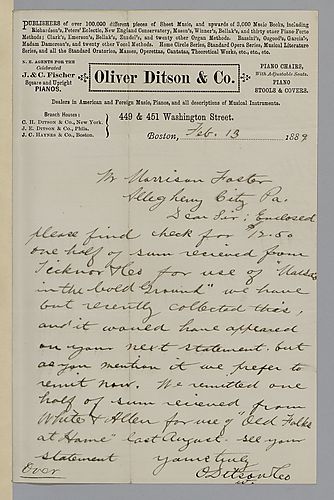 PUBLISHERS of over 100,000 different pieces of Sheet Music, and upwards of 2,000 Music Books, including
Richardson's, Peters' Eclectic, New England Conservatory, Mason's, Winner's, Bellak's, and thirty other Piano-Forte
Methods; Clark's, Emerson's, Bellak's, Zundel's, and twenty other Organ Methods. Bassini's, Osgood's, Garcia's,
Madam Damoreau's, and twenty other Vocal Methods. Home Circle Series, Standard Opera Series, Musical Literature
Series, and all the Standard Oratorios, Masses, Operettas, Cantatas, Theoretical Works, etc., etc., etc.
N. E. AGENTS FOR THE
Celebrated
J. & C. Fischer
Square and Upright
PIANOS.
Oliver Ditson & Co.
PIANO CHAIRS,
With Adjustable Seats.
PIANO
STOOLS & COVERS.
Dealers in American and Foreign Music, Pianos, and all descriptions of Musical Instruments.
Branch Houses:
C. H. DITSON & CO., New York.
J. E. DITSON & CO., Phila.
J. C. HAYNES & CO., Boston.
449 & 451 Washington Street.
Boston, Feb. 13 1889
Mr Morrison Foster
Allegheny City Pa.
Dear Sir; Enclosed
please find check for $12.50
one half of sum recieved from
Ticknor & Co for use of "Massa's
in the Cold Ground" we have
but recently collected this,
and it would have appeared
on your next statement. but
as you mention it we prefer to
remit now. We remitted one
half of sum recieved from
White & Allen for use of "Old Folks
at Home" last August. see your
statement yours truly
O Ditson & Co
Over